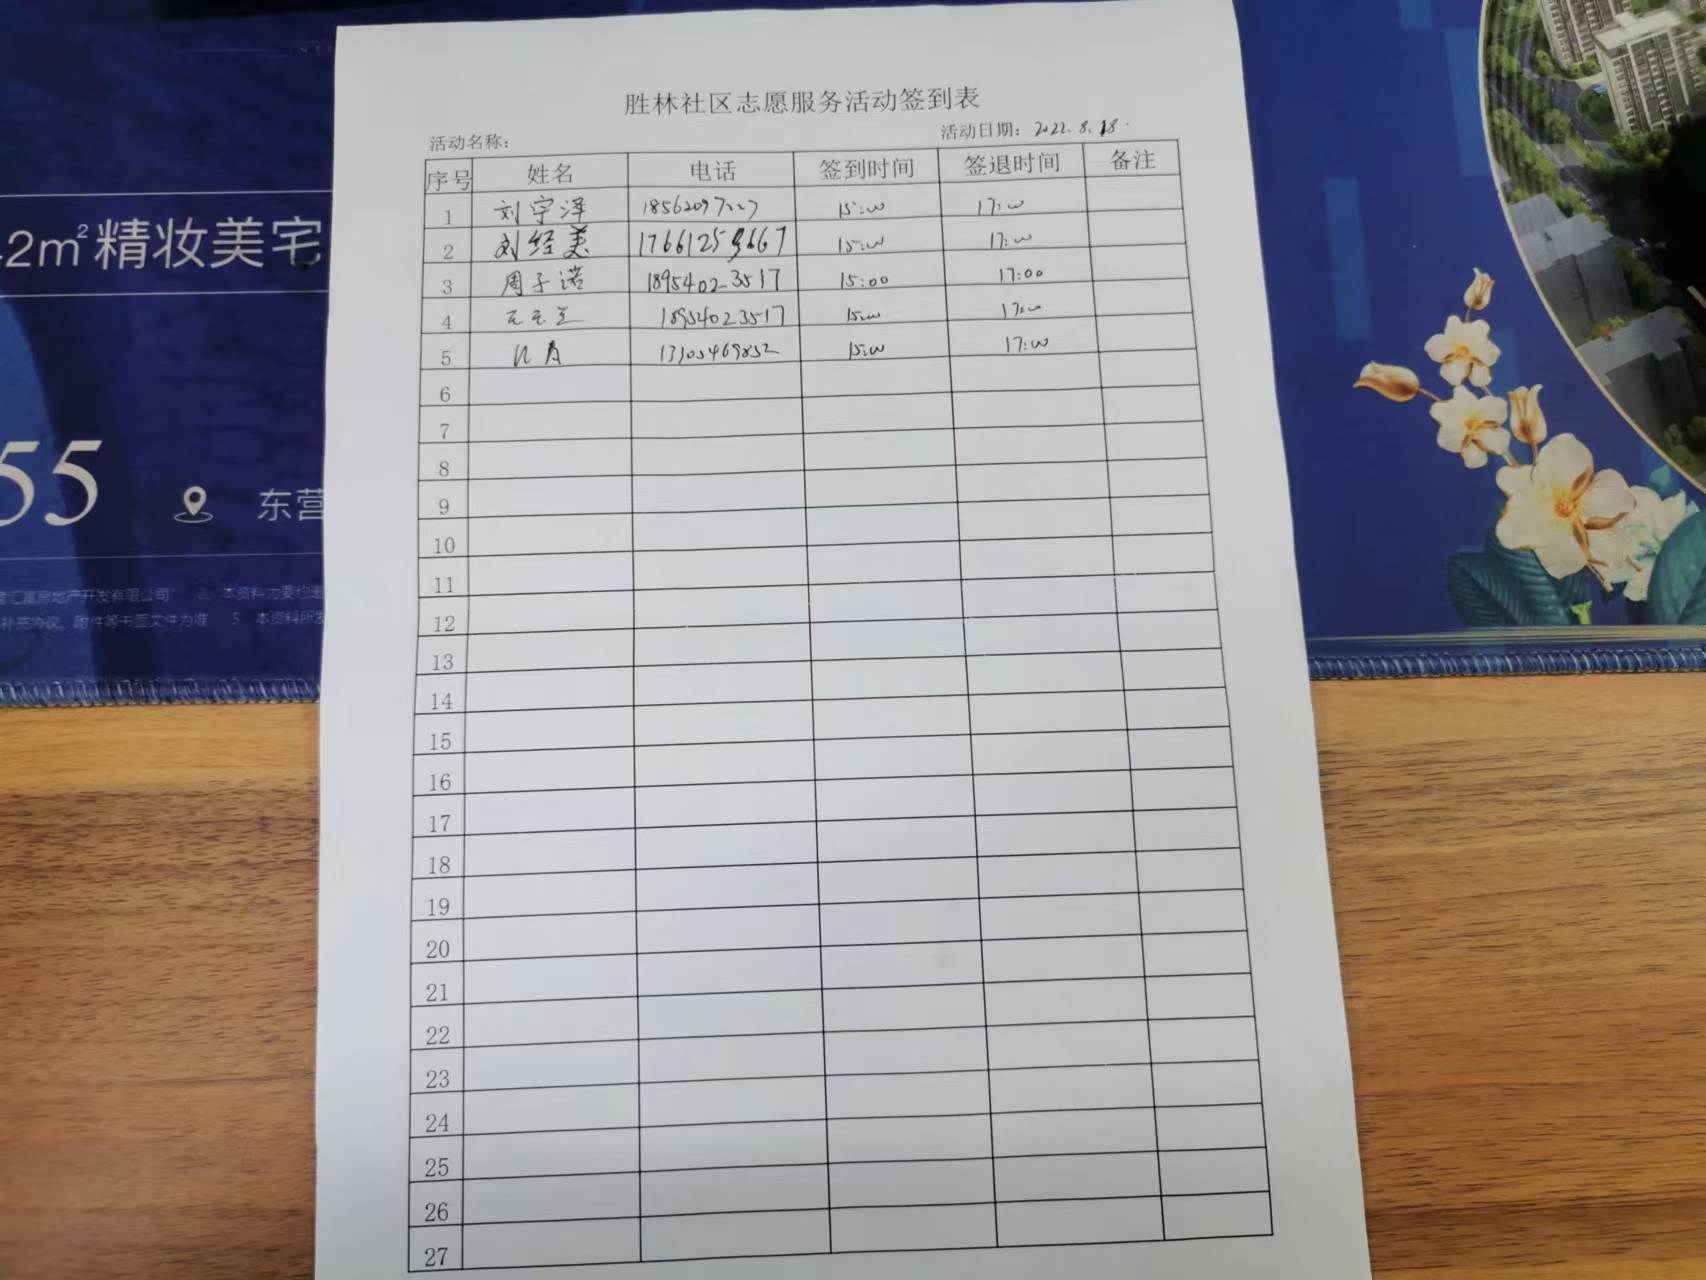 胜林社区志愿服务活动签到表
活动名称： 活动日期：2022.8.18.
序号 姓名 电话 签到时间 签退时间 备注
1 刘宇泽 15:00 17:00
2 刘经美 15:00 17:00
3 周子诺 18954023517 15:00 17:00
4 18954023517 15:00 17:00
5 13305469852 15:00 17:00
6
7
8
9
10
11
12
13
14
15
16
17
18
19
20
21
22
23
24
25
26
27
2m²精妆美宅
55 东营
汇富房地产开发有限公司 2、本资料为要约邀
补充协议、附件等书面文件为准 5、本资料所发